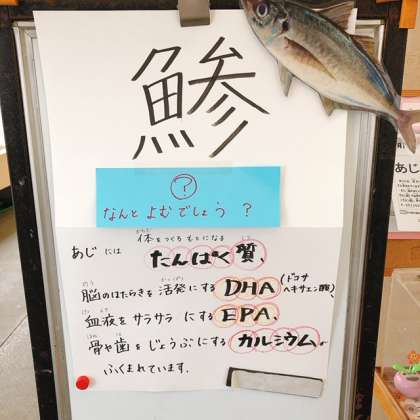 鯵
?
なんと よむでしょう ?
からだ
あじ には 体をつくる もとになる
しつ
たんぱく質、
のう かっぱつ
脳のはたらきを 活発にする DHA(ドコサヘキサエン酸)
けつえき
血液を サラサラ にする EPA、
ほね は
骨や歯を じょうぶにする カルシウムが
ふくまれています。
あじ